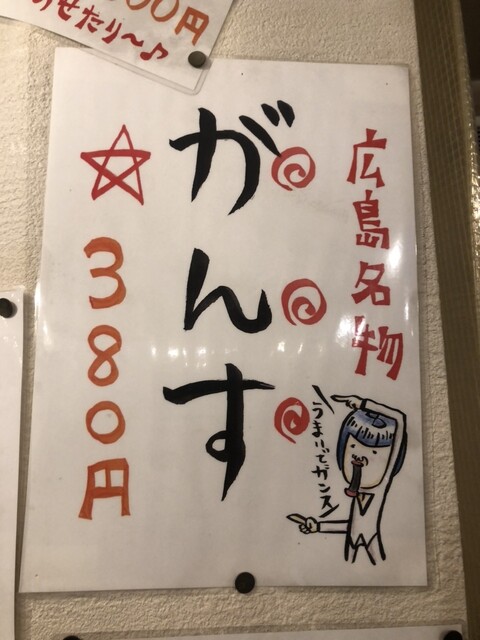 00円
のせたり～♪
広島名物
がんす
☆380円
うまいでガンス